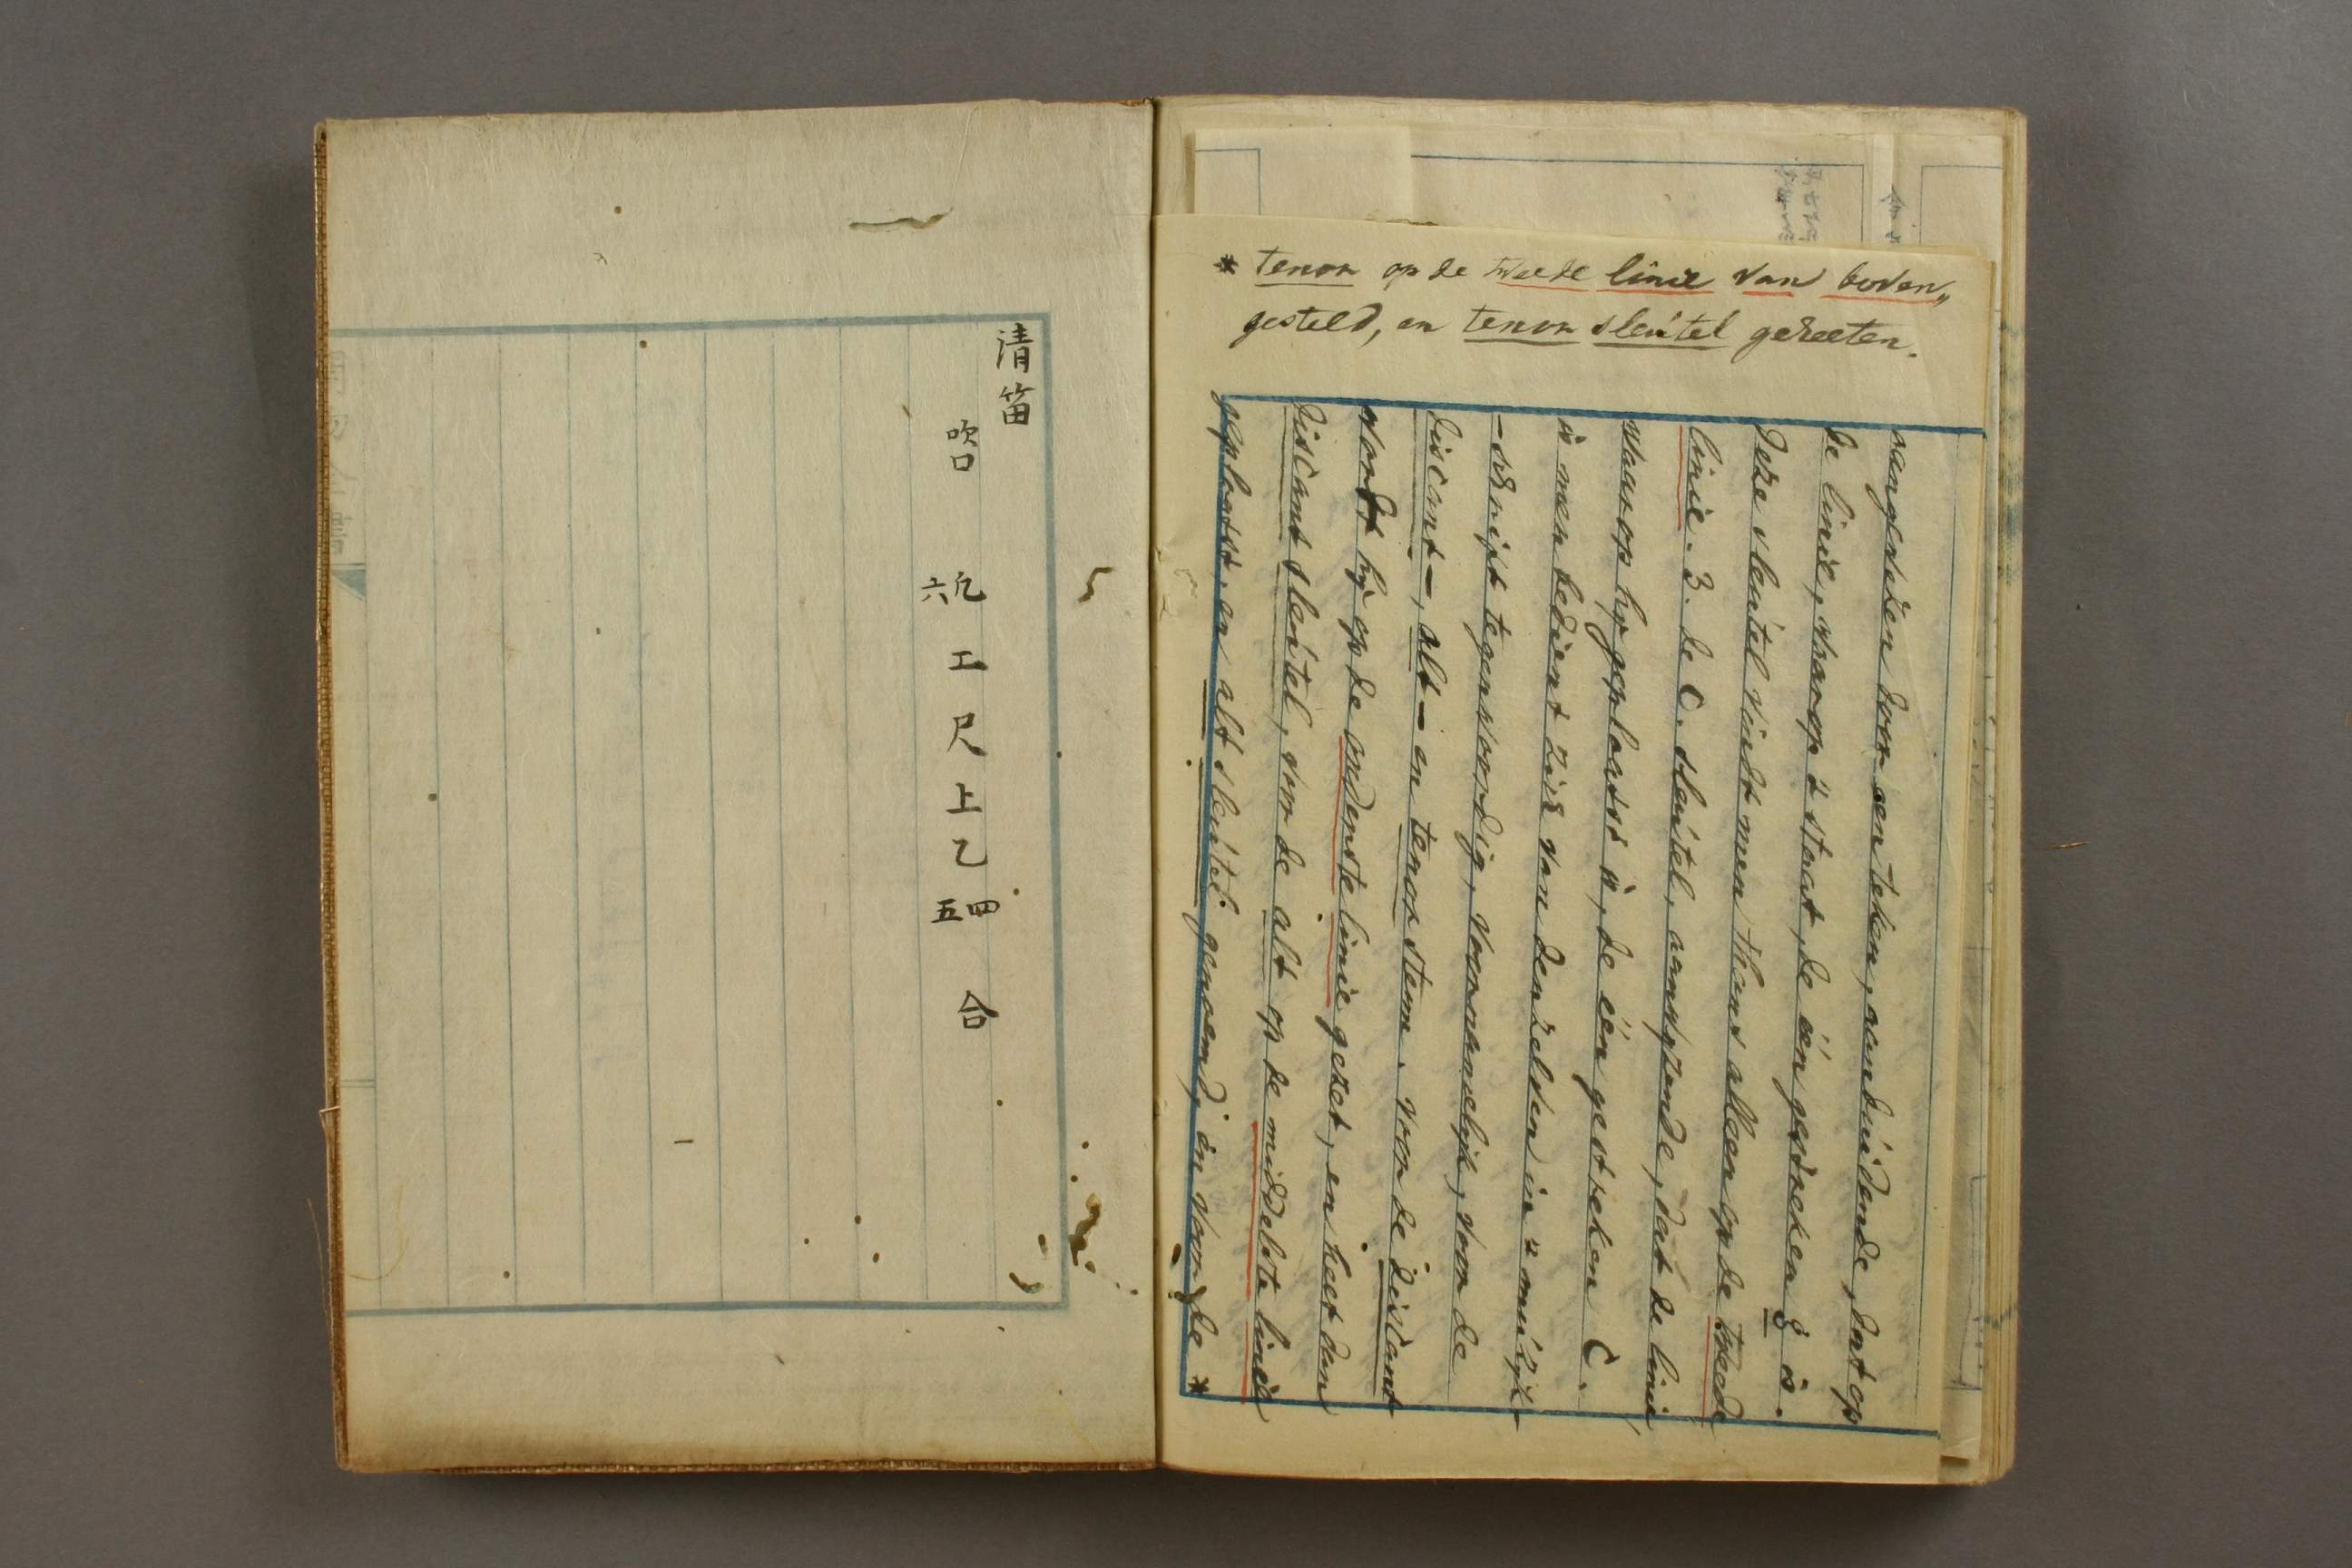 清笛
吹口
凢
六
工
尺
上
乙
四
五
合
* tenor op de tweede linie van boven„
gesteld, en tenor sleutel geheeten.
aangewezen door een teken, aanduidende, dat op
de linie, waarop 's staat, de één gestreken g is.
Deze sleutel vindt men thans alleen op de tweede
linie. 3. de C. sleutel, aanwyzende, dat de linie,
waarop hy geplaatst is, de één gestreken C.
is men bedient zich van denzelven in 's muzyk-
-schrift tegenwoordig, voornamelyk, voor de
discant-, alt- en tenor stem. Voor de discant
wordt hy op de onderste linie gezet, en heet dan
discant sleutel, voor de alt op de middelste linie
geplaatst, en alt sleutel genoemd; en voor de *